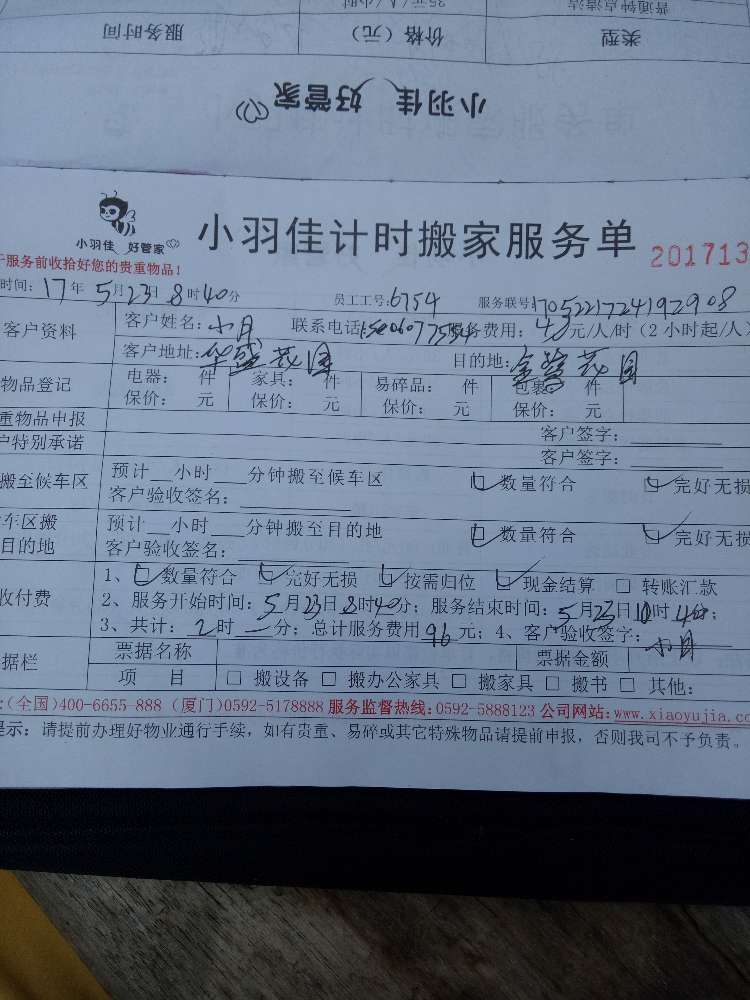 普通钟点清洁 35元/人/小时
类型 价格（元） 服务时间
小羽佳 好管家
小羽佳 好管家
小羽佳计时搬家服务单
201713
服务前收拾好您的贵重物品！
时间：17年5月23日8时40分 员工工号：6754 服务联号：1705221724192908
客户资料
客户姓名：小月 联系电话 服务费用：48元/人/时（2小时起/人）
客户地址：华盛花园 目的地：金磐花园
物品登记
电器： 件 家具： 件 易碎品： 件 包裹： 件
保价： 元 保价： 元 保价： 元 保价： 元
重物品申报 客户签字：
户特别承诺 客户签字：
搬至候车区
预计 小时 分钟搬至候车区 数量符合 完好无损
客户验收签名：
车区搬
目的地
预计 小时 分钟搬至目的地 数量符合 完好无损
客户验收签名：
收付费
1、数量符合 完好无损 按需归位 现金结算 □ 转账汇款
2、服务开始时间：5月23日8时40分；服务结束时间：5月23日10时40分；
3、共计：2时一分；总计服务费用96元；4、客户验收签字：小月
据栏
票据名称 票据金额
项 目 □ 搬设备 □ 搬办公家具 □ 搬家具 □ 搬书 □ 其他：
:(全国)400-6655-888 (厦门)0592-5178888 服务监督热线:0592-5888123 公司网站:www.xiaoyujia.co
提示：请提前办理好物业通行手续，如有贵重、易碎或其它特殊物品请提前申报，否则我司不予负责。